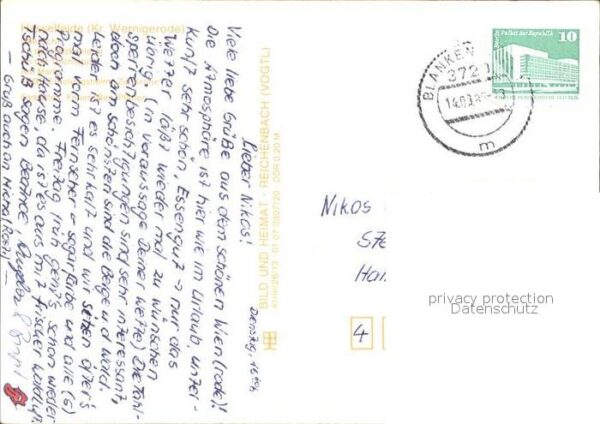 Hasselfelde (Kr. Wernigerode)
Dienstag, 16.00h
Lieber Nikos!
Viele liebe Grüße aus dem schönen Wien(rode)!
Die Atmosphäre ist hier wie im Urlaub, unter-
kunft sehr schön, Essen gut → nur das
Wetter läßt wieder mal zu wünschen
übrig (in Voraussage Deiner Wette) Die Tal-
sperrenbesichtigungen sind sehr interessant,
doch am schönsten sind die Berge und Wald.
Leider ist es sehr kalt und wir sehen öfter's
mal vom Fernseher - sogar Farbe und alle (6)
Programme. Freitag früh geht's schon wieder
nach Hause, da ist es aus mit frischer Waldluft
Tschüß sagen
- Gruß auch an Micha
BILD UND HEIMAT · REICHENBACH (VOGTL)
A1/IV/26/13 01 07 0307/20 DDR 0,20 M
BLANKEN
3720
m
Berlin Palast der Republik
10
Nikos
Ha
4
privacy protection
Datenschutz